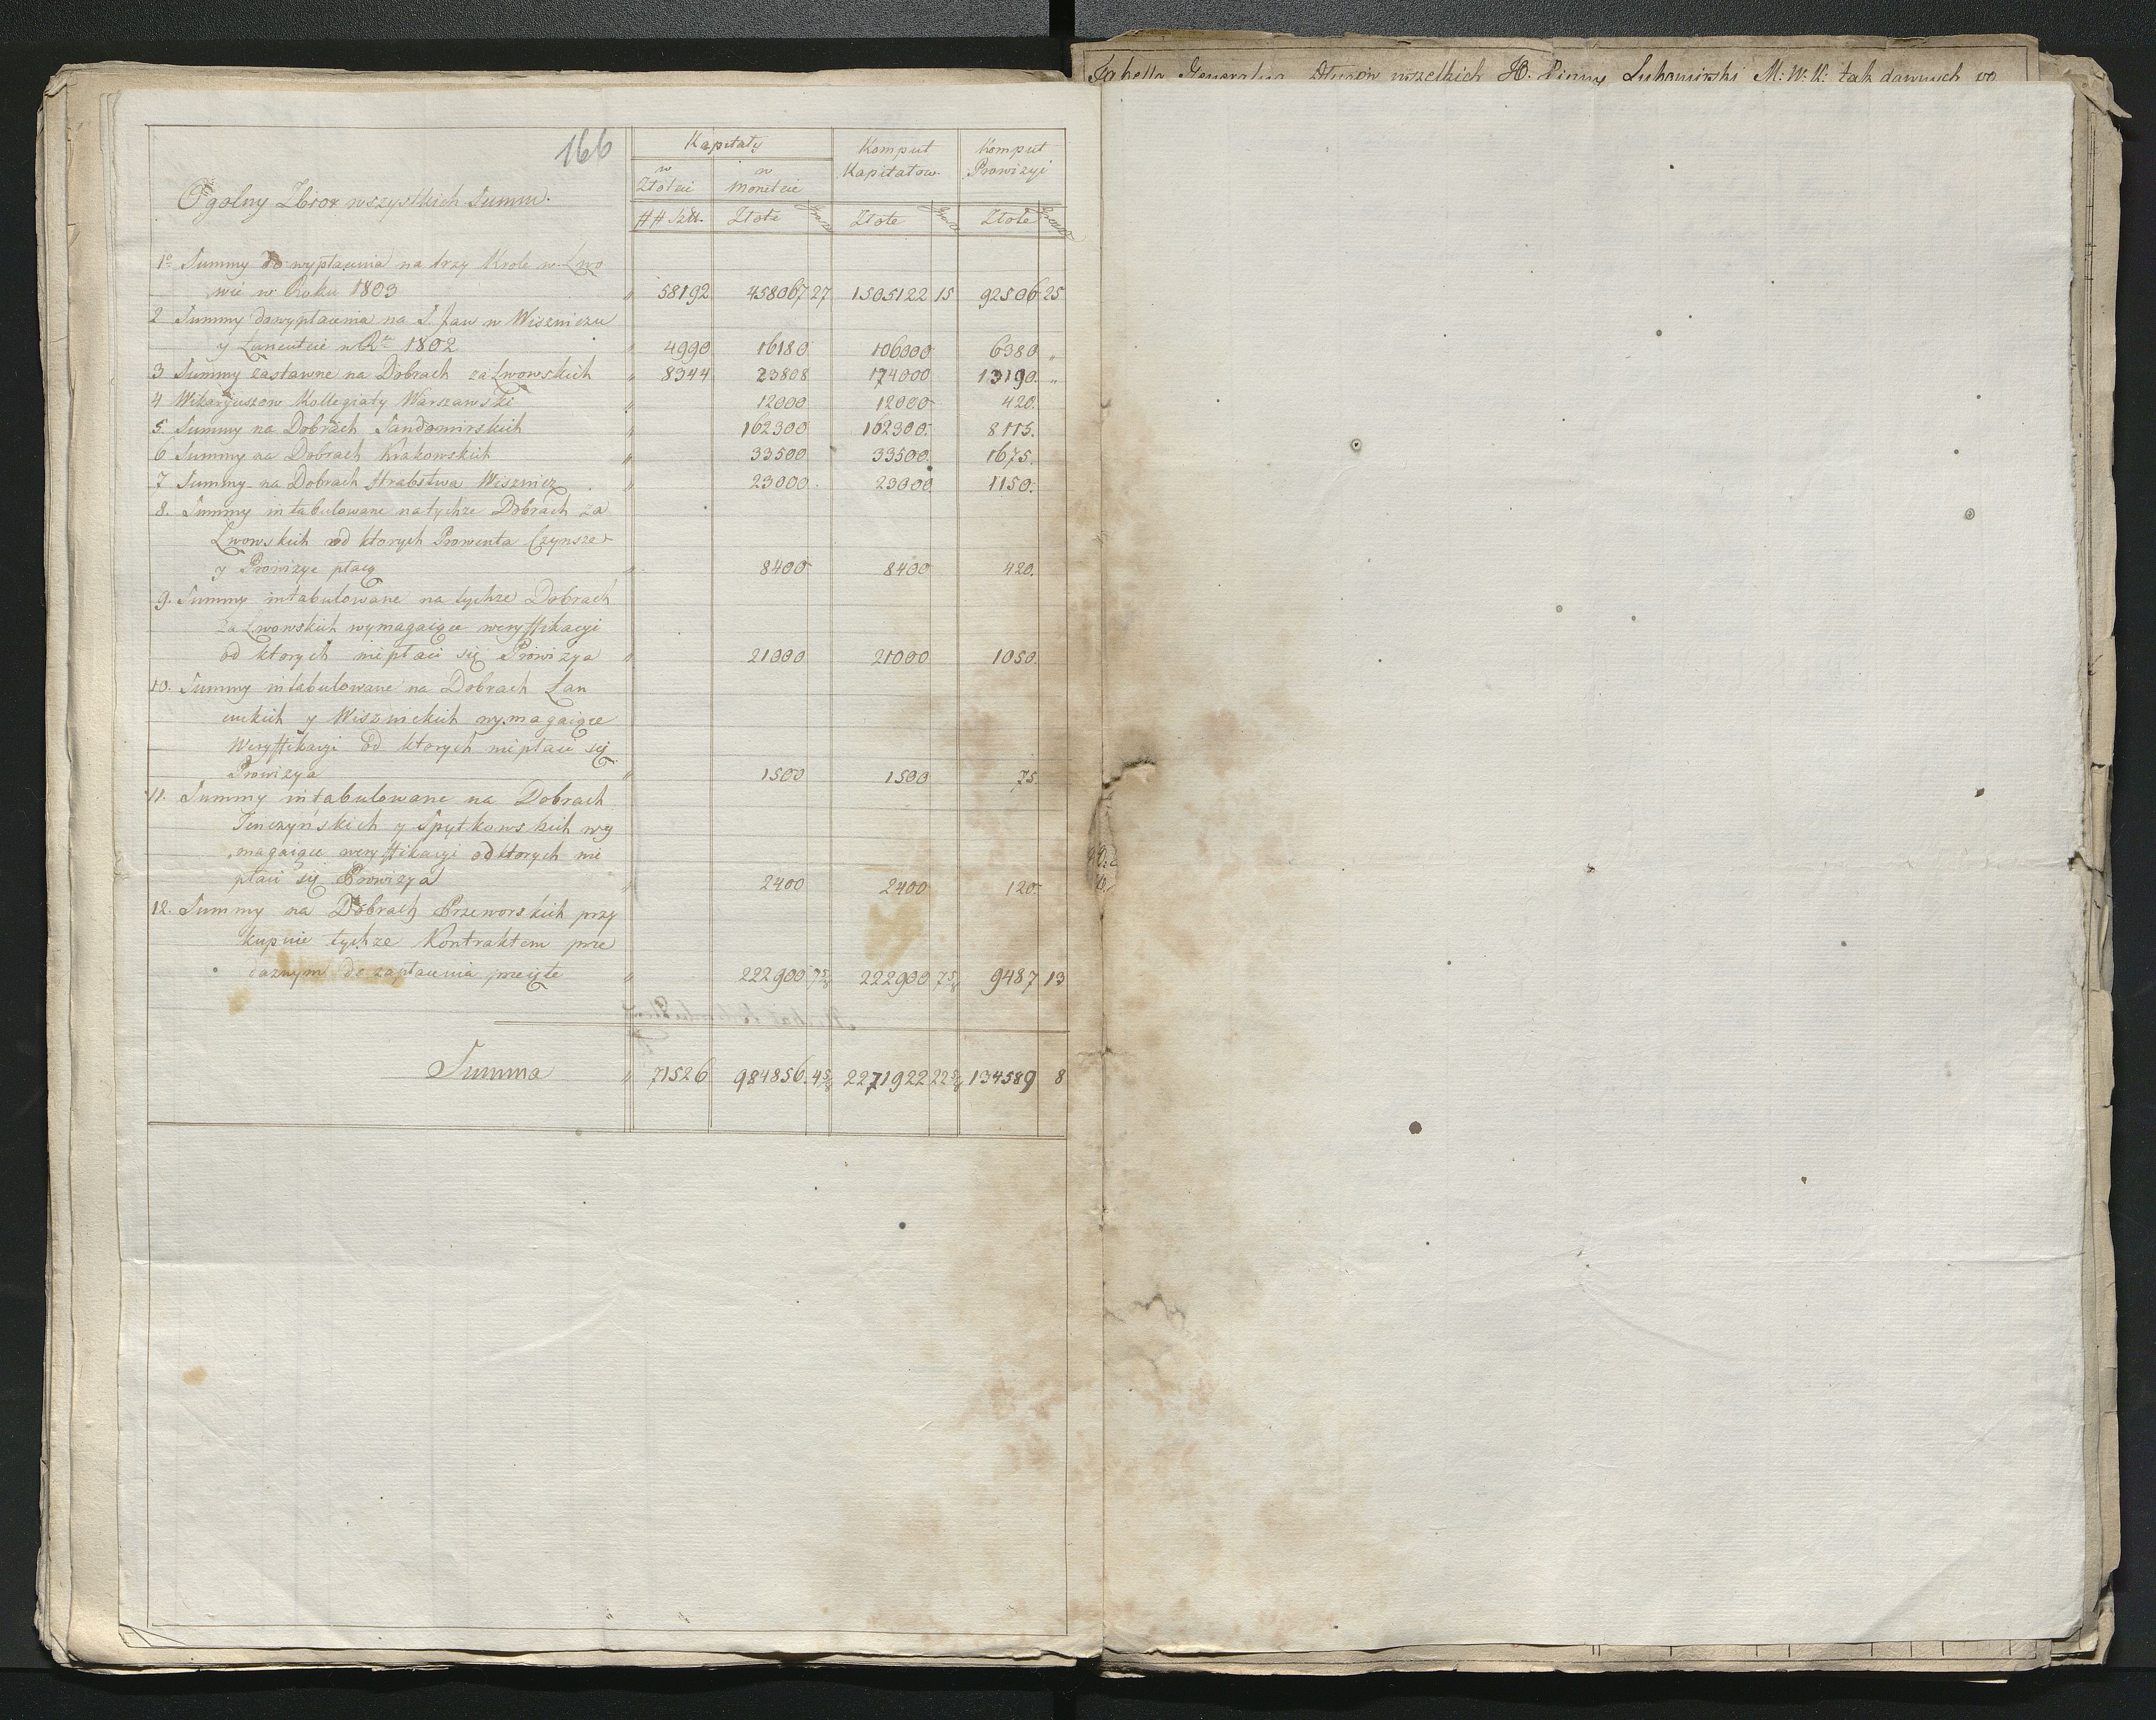 Tabella Generalna Długów wszelkich H. Lubomirski M: W: K: tak dawnych
166
Kapitały
Komput Kapitałow
Komput Prowizyi
w Złocie
w Monecie
Ogolny Zbior wszystkich Summ.
## Szt. Złote Złote Złote
1o Summy do wypłacenia na trzy Krole w Lwo
wie w Roku 1803 " 58192 458067 27 1505122 15 92506 25
2 Summy do wypłacenia na S. Jan w Wiszniczu
y Łancucie w Rku 1802 " 4990 16180 106000 6380 "
3 Summy zastawne na Dobrach za Lwowskich " 8344 23808 174000 13190. "
4 Wikaryuszow Kollegiaty Warszawski " 12000 12000 420.
5. Summy na Dobrach Sandomirskich " 162300 162300. 8115.
6 Summy na Dobrach Krakowskich " 33500 33500. 1675.
7 Summy na Dobrach Hrabstwa Wisznicz " 23000 23000 1150.
8. Summy intabulowane na tychze Dobrach za
Lwowskich od ktorych Prowenta Czynsze
y Prowizye płacą " 8400 8400 420.
9. Summy intabulowane na tychze Dobrach
za Lwowskich wymagaiące weryffikacyi
od ktorych niepłaci się Prowizya " 21000 21000 1050.
10. Summy intabulowane na Dobrach Łan
cuckich y Wisznickich wymagaiące
Weryffikacyi od ktorych niepłaci się
Prowizya " 1500 1500 75.
11. Summy intabulowane na Dobrach
Tenczyńskich y Spytkowskich wy
magaiące weryffikacyi od ktorych nie
płaci się Prowizya " 2400 2400 120.
12. Summy na Dobrach Przeworskich przy
kupnie tychze Kontraktem prze
daznym do zapłacenia przeięte " 222900 7 5/8 222900 7 5/8 9487 13
Summa " 71526 984856. 4 5/8 2271922 22 5/8 134589 8